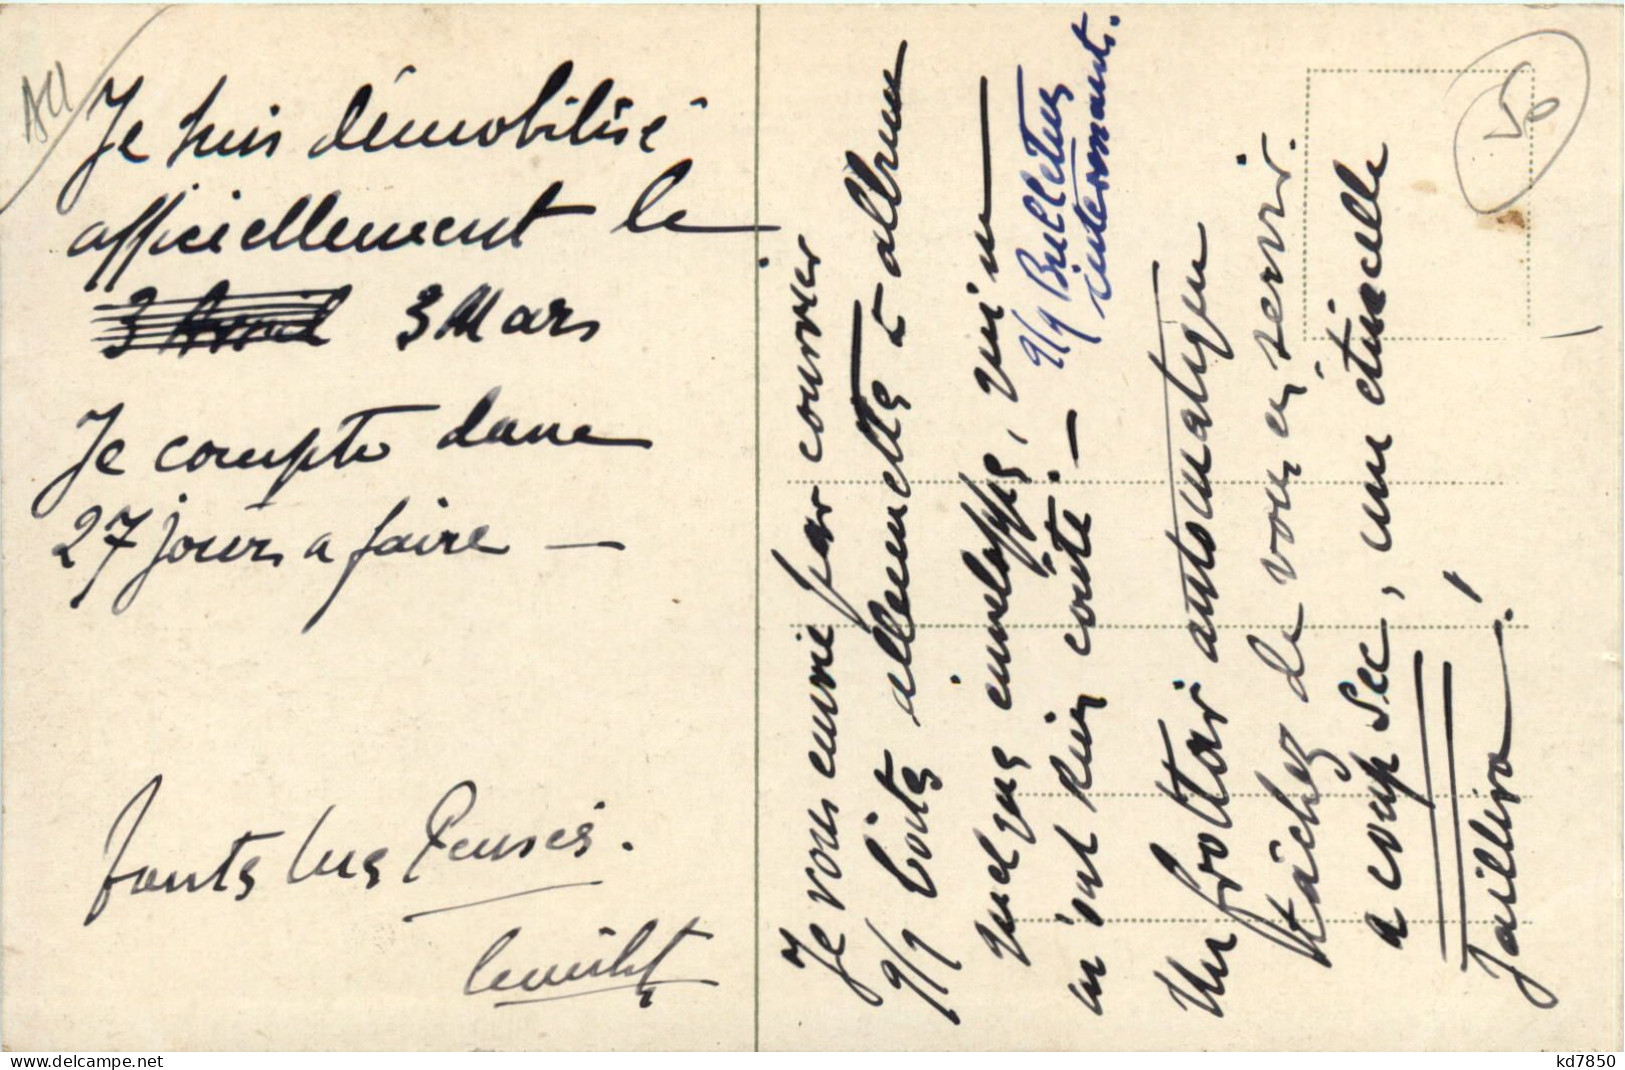 All
Je suis démobilisé
officiellement le
3 Avril 3 Mars
Je compte dans
27 jours a faire —
toutes les Pensées.
Je vous envoie par courrier
q/q boites allumettes & album
quelques enveloppes, qui n
m'ont rien couté. —
q/q Bulletins
interessants.
Un frottoir automatique
tâchez de vous en servir.
a coup sec, une étincelle
jaillira !
50
www.delcampe.net
kd7850